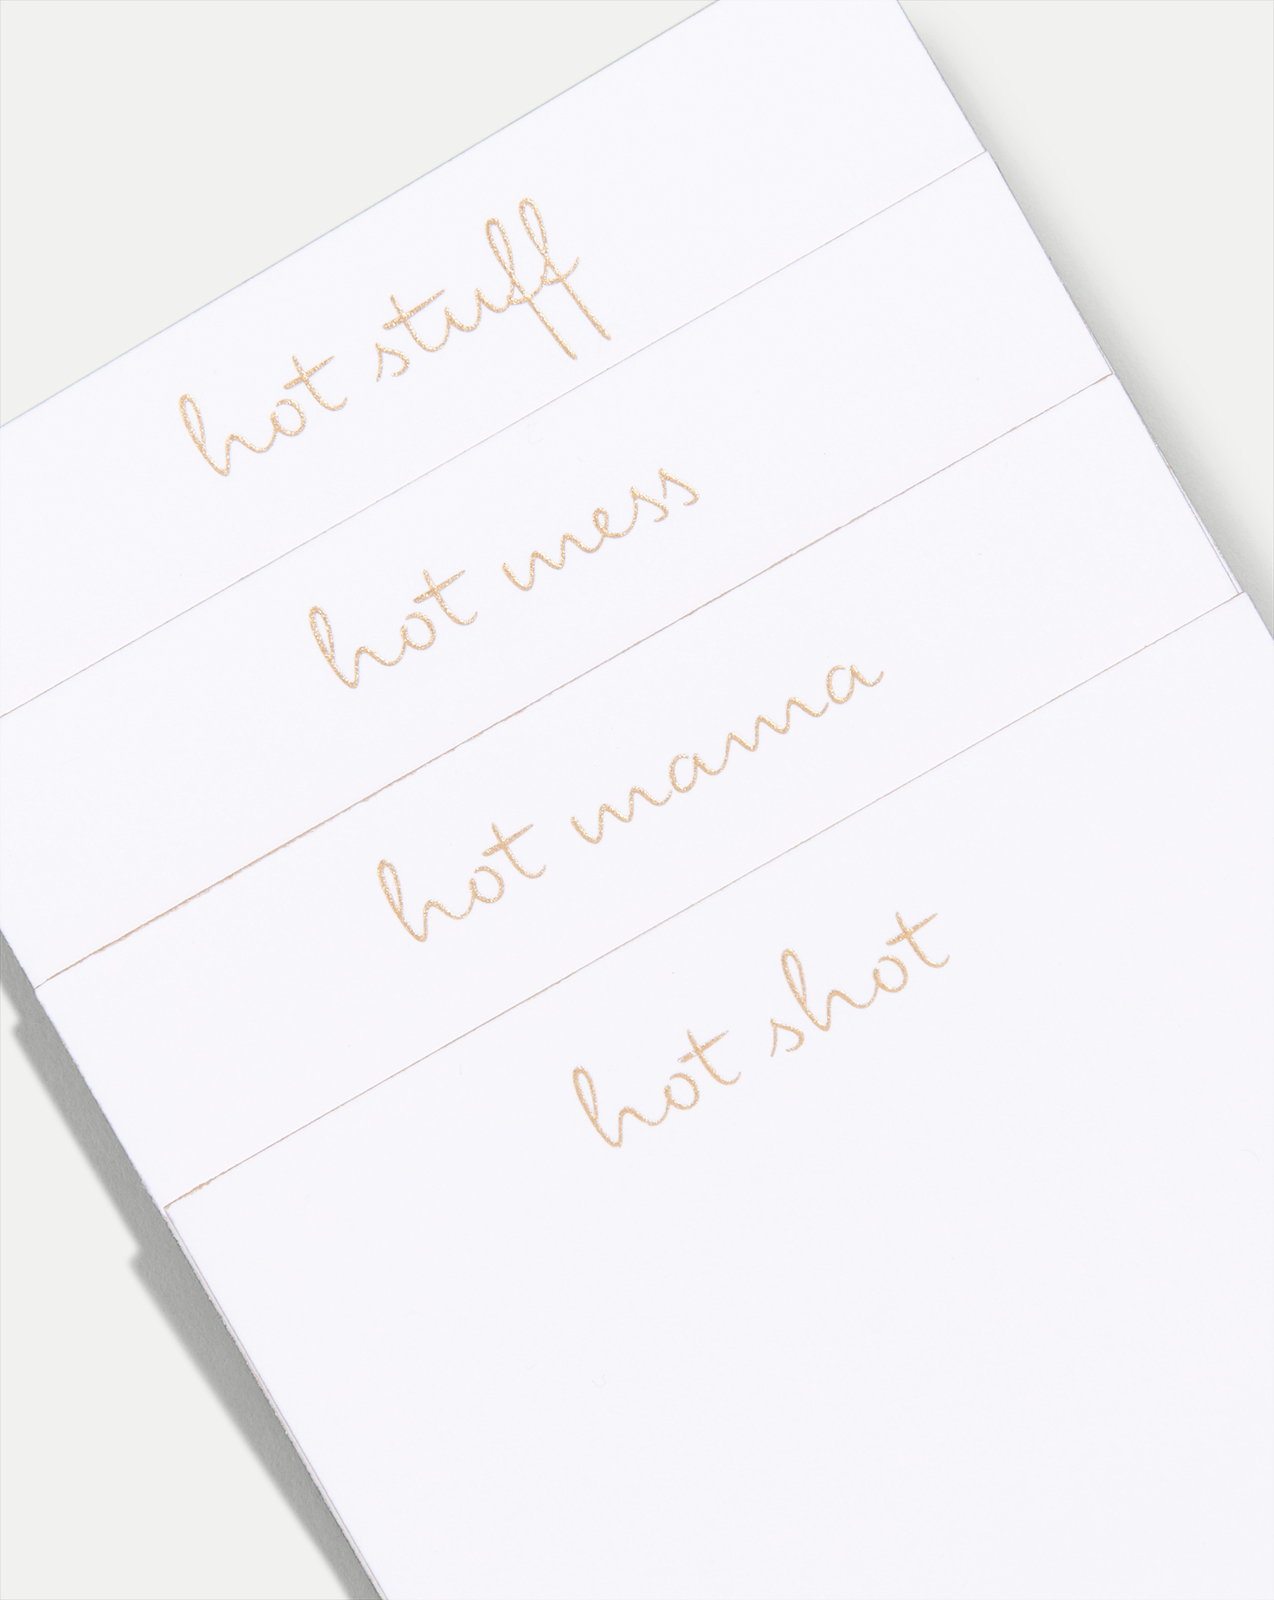 hot stuff
hot mess
hot mama
hot shot